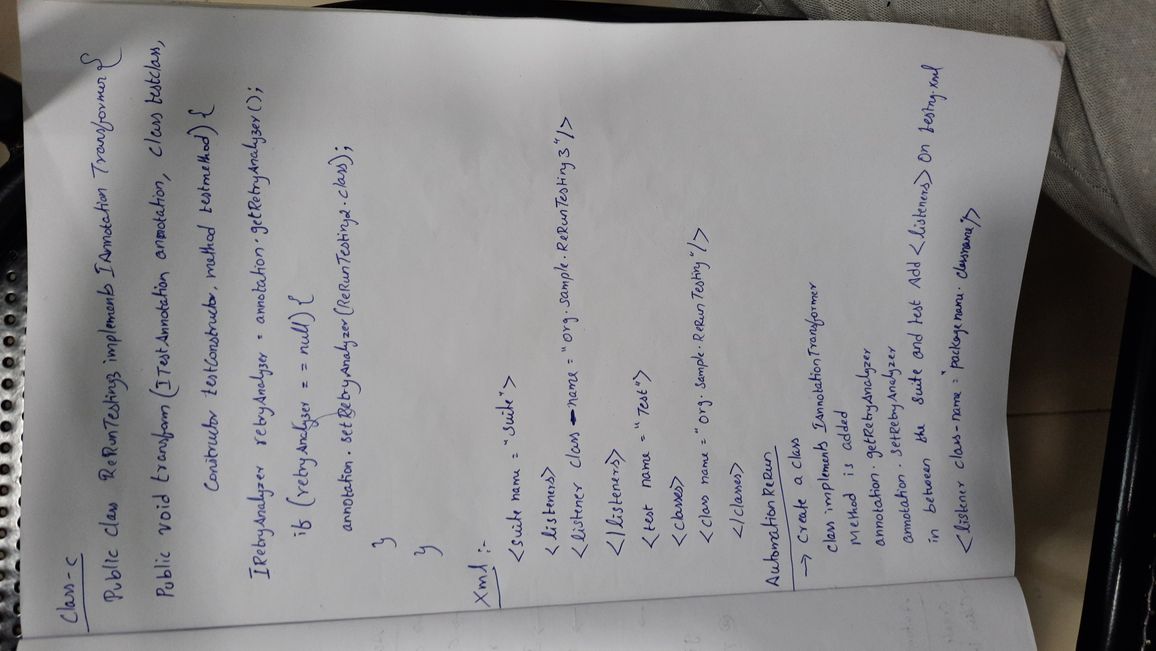 Class-c
Public class ReRunTesting3 implements IAnnotation Transformer {
Public void transform (ITestAnnotation annotation, Class testclass,
Constructor testConstructor, method testmethod) {
IRetryAnalyzer retryAnalyzer = annotation.getRetryAnalyzer();
if (retryAnalyzer == null) {
annotation.setRetryAnalyzer(ReRunTesting2.class);
}
}
Xml :-
<suite name = "Suite">
<listeners>
<listener class-name = "org.sample.ReRunTesting3"/>
</listeners>
<test name = "Test">
<classes>
<class name = "org.sample.ReRunTesting"/>
</classes>
Automation ReRun
→ Create a class
class implements IAnnotationTransformer
Method is added
annotation.getRetryAnalyzer
annotation.setRetryAnalyzer
in between the suite and test Add <listeners> on testng.xml
<listener class-name = "package name.classname"/>